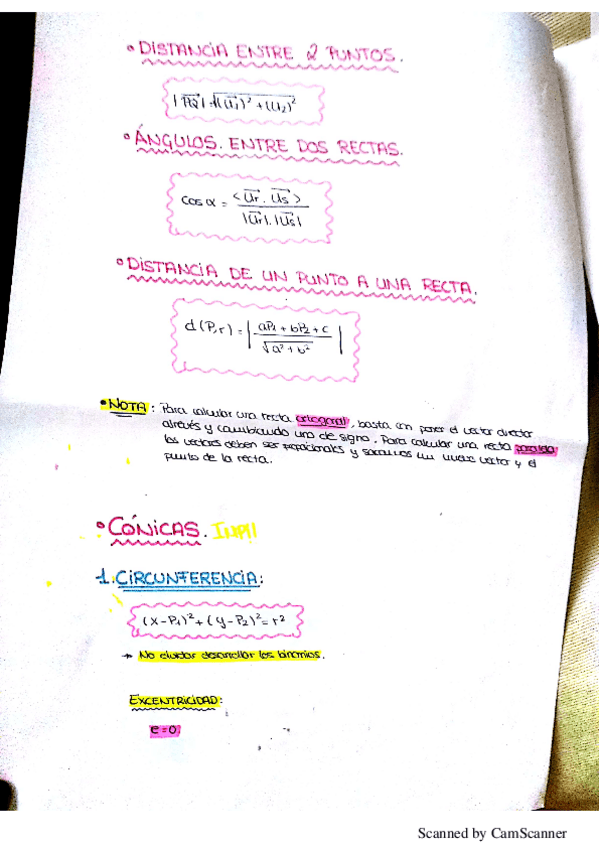 • DISTANCIA ENTRE 2 PUNTOS.
|PQ| = √(u₁)² + (u₂)²
• ÁNGULOS. ENTRE DOS RECTAS.
cos α = <Ur · Us> / |Ur|·|Us|
• DISTANCIA DE UN PUNTO A UNA RECTA.
d(P,r) = | aP₁ + bP₂ + c / √a² + b² |
• NOTA: Para calcular una recta ortogonal, basta con poner el vector director
alrevés y cambiando uno de signo. Para calcular una recta paralela
los vectores deben ser proporcionales y sacamos un nuevo vector y el
punto de la recta.
• CÓNICAS.
1. CIRCUNFERENCIA:
(x-P₁)² + (y-P₂)² = r²
→ No olvidar desarrollar los binomios.
EXCENTRICIDAD:
e=0
Scanned by CamScanner